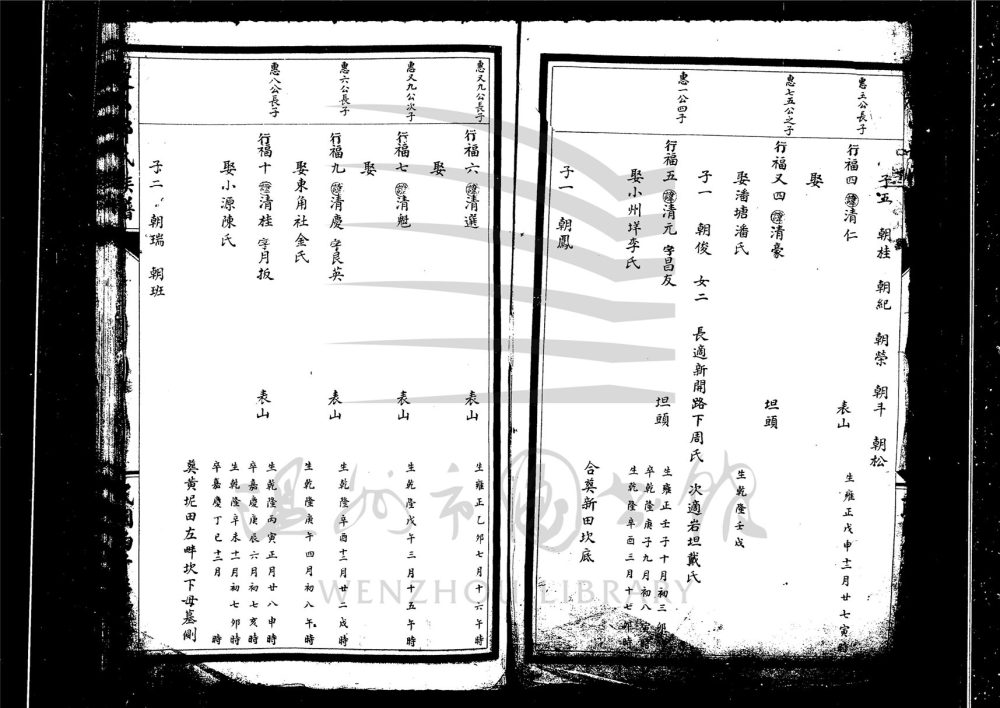 子五 朝桂 朝紀 朝榮 朝斗 朝松
惠五公長子
行福四 諱清仁 表山 生雍正戊申十二月廿七寅時
娶
惠七五公之子
行福又四 諱清豪 坦頭 生乾隆壬戌
娶潘塘潘氏
子一 朝俊 女二 長適新開路下周氏 次適岩坦戴氏
惠一公四子
行福五 諱清元 字昌友 坦頭 生雍正壬子十月初三卯時
卒乾隆庚子九月初八寅時
娶小州垟李氏 生乾隆辛酉三月十七卯時
合奠新田坎底
子一 朝鳳
惠又九公長子
行福六 諱清選 表山 生雍正乙卯七月十六午時
娶
惠又九公次子
行福七 諱清魁 表山 生乾隆戊午三月十五午時
娶
惠六公長子
行福九 諱清慶 字良英 表山 生乾隆辛酉十二月廿二戌時
娶東角社金氏 生乾隆庚午四月初八午時
惠八公長子
行福十 諱清桂 字月扳 表山 生乾隆丙寅正月廿八申時
卒嘉慶庚辰六月初七亥時
娶小源陳氏 生乾隆辛未十一月初七卯時
卒嘉慶丁巳十二月 時
奠黄坭田左畔坎下母墓側
子二 朝瑞 朝班
溫州市圖書館
WENZHOU LIBRARY